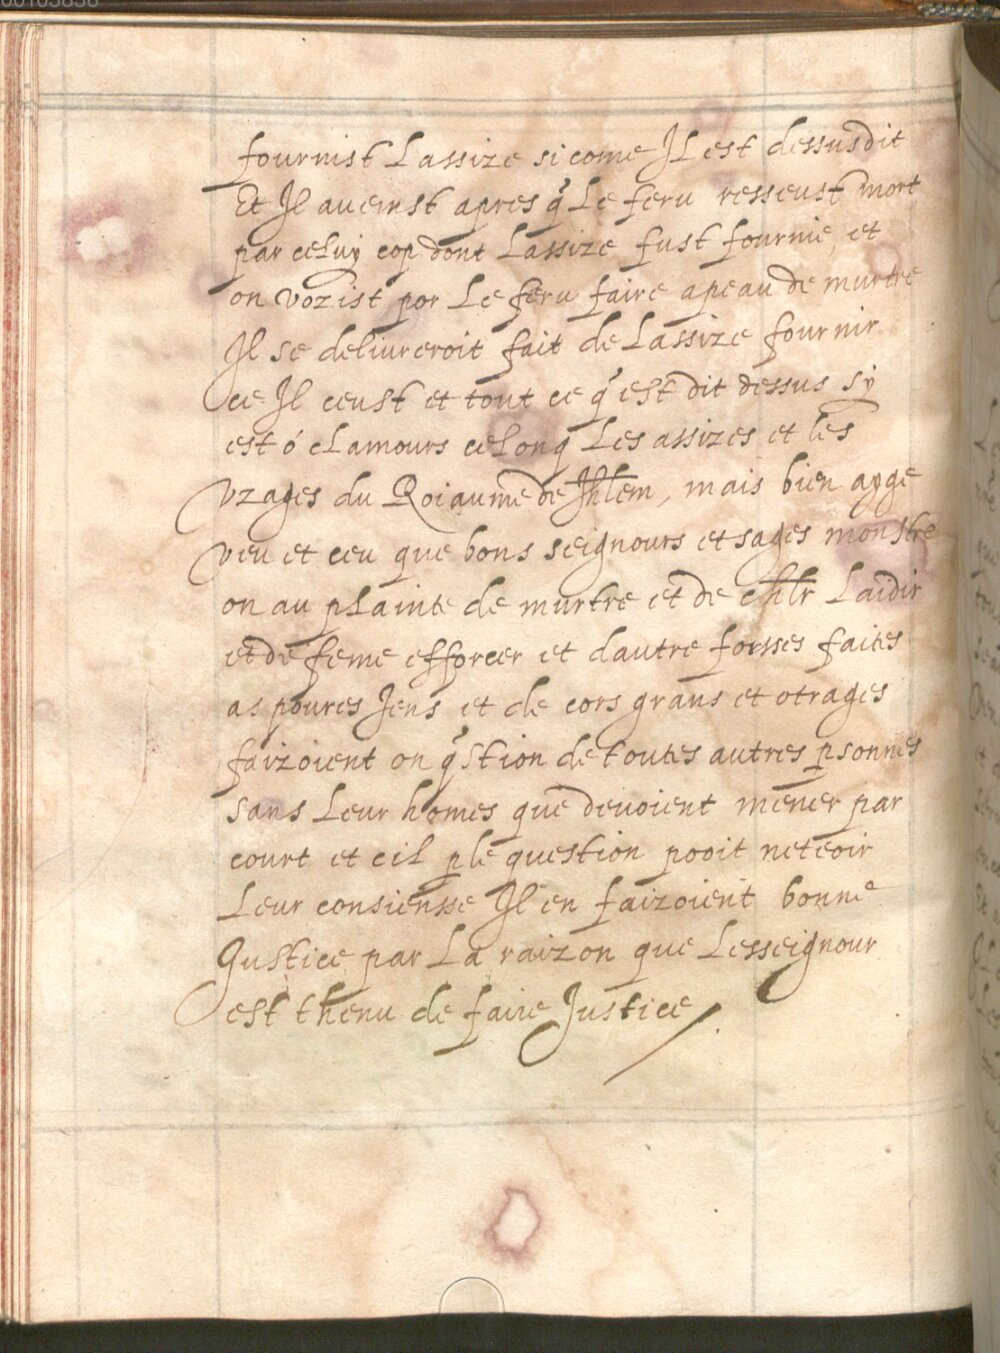 fournist Lassize si come Il est dessusdit
Et Il aveinst apres q̃ Le feru resseust mort
par celuy cop dont Lassize fust fournie, et
on vozist por Le feru faire apeau de murtre
Il se delivreroit fait de Lassize fournir
ce Il ceust et tout ce q̃ est dit dessus sy
est ó clamours celonq Les assizes et les
vzages du Roiaume de Jhlem, mais bien ayge
veu et ceu que bons seignours et sages monstre
on au plainte de murtre et de chlr Laidir
et de feme efforcer et dautre forsses faites
as poures Jens et de cors grans et otrages
faizoient on q̃stion de toutes autres psonnes
sans Leur homes que devoient mener par
court et cil ple question pooit neteoir
Leur consiensse Il en faizoient bonne
Justice par La raizon que Lesseignour
est thenu de faire Justice